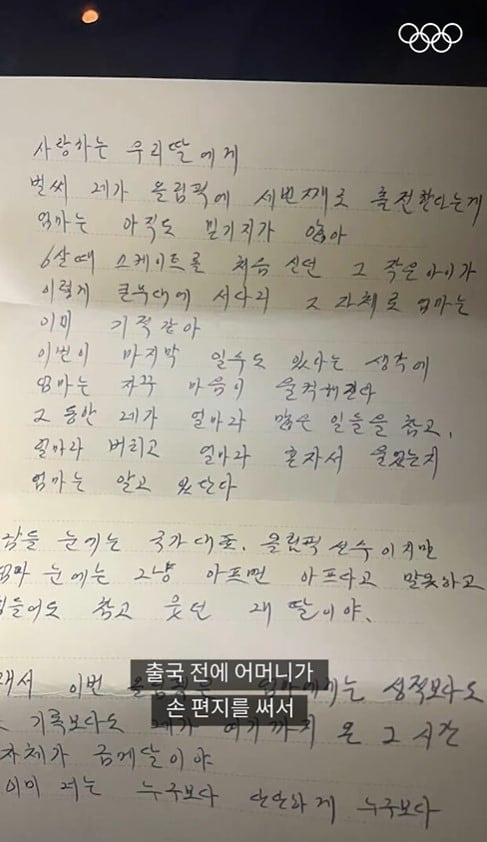 사랑하는 우리딸에게
벌써 레가 올림픽에 세번째로 출전한다는게
엄마는 아직도 믿기지가 않아
6살때 스케이트를 처음 신던 그 작은아이가
이렇게 큰무대에 서다니 그 자체로 엄마는
이미 기적같아
이번이 마지막 일수도 있다는 생각에
엄마는 자꾸 마음이 울컥해진다
그 동안 레가 얼마나 많은 일들을 참고,
얼마나 버리고 얼마나 혼자서 울었는지
엄마는 알고 있단다
눈에는 국가대표, 올림픽 선수이지만
눈에는 그냥 아프면 아프다고 말못하고
참고 웃던 내 딸이야.
이번 성적보다도
기록보다도 레가 여기까지 온 그 시간
자체가 금메달이야
이미 너는 누구보다 단단하게 누구보다
출국 전에 어머니가
손 편지를 써서